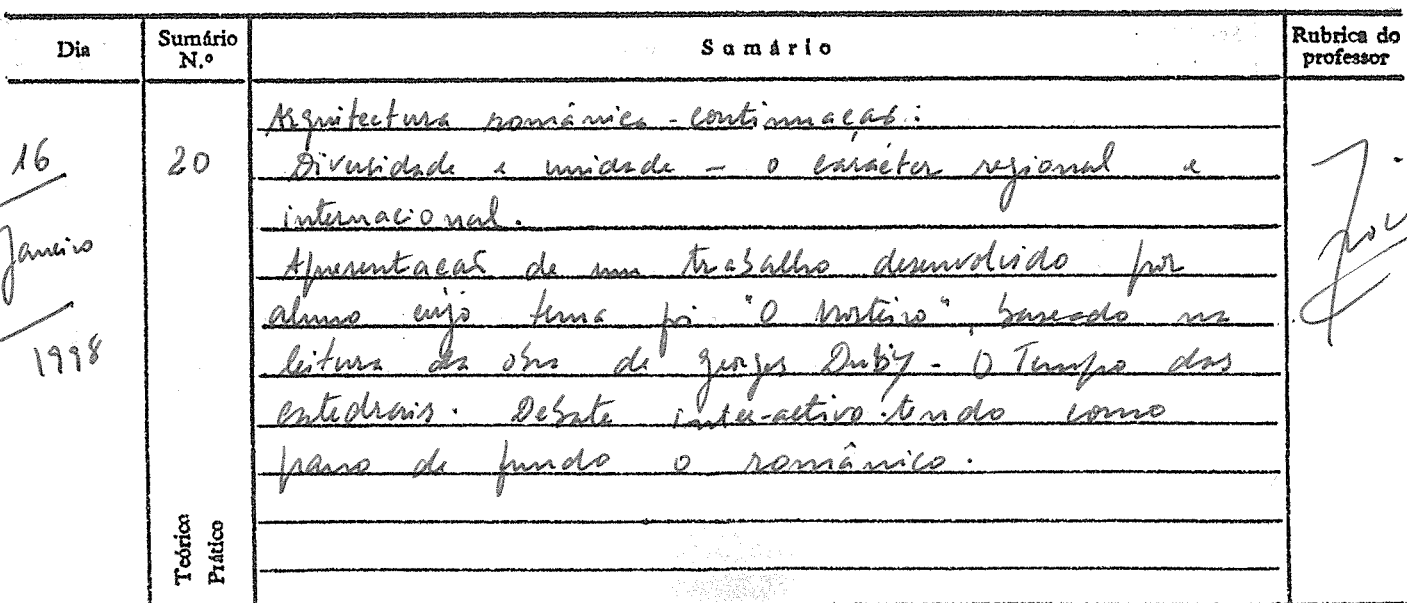 Dia
Sumário N.º
Sumário
Rubrica do professor
16
Janeiro
1998
20
Arquitectura românica - continuação:
Diversidade e unidade - o carácter regional e
internacional.
Apresentação de um trabalho desenvolvido por
aluno cujo tema foi "O Mosteiro", baseado na
leitura da obra de Georges Duby - O Tempo das
catedrais. Debate inter-activo tendo como
pano de fundo o românico.
Teórico
Prático